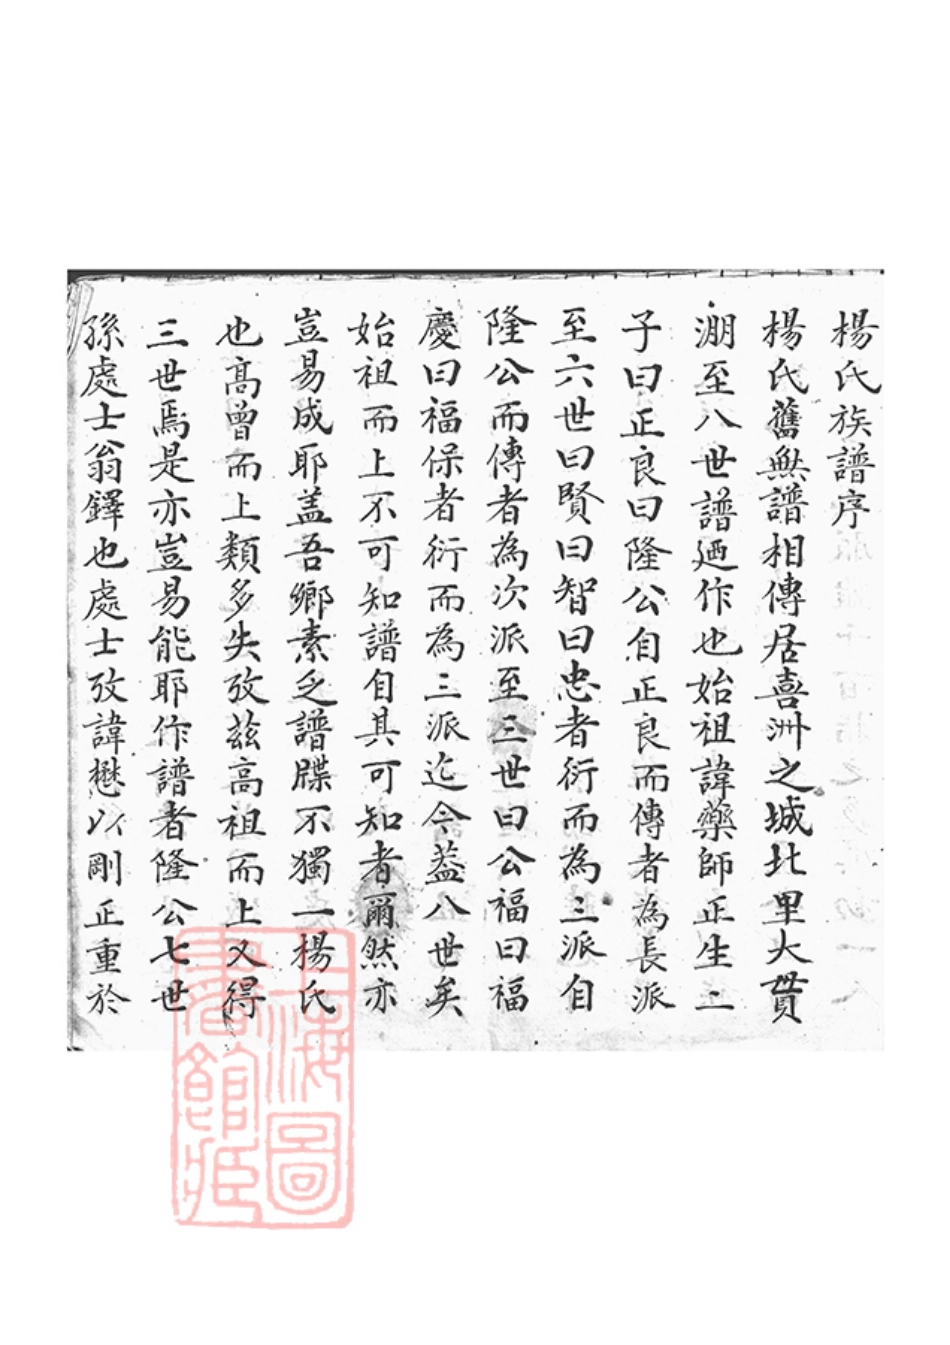 楊氏族譜序
楊氏舊無譜相傳居喜洲之城北里大貫
淜至八世譜廼作也始祖諱藥師正生二
子曰正良曰隆公自正良而傳者為長派
至六世曰賢曰智曰忠者衍而為三派自
隆公而傳者為次派至三世曰公福曰福
慶曰福保者衍而為三派迄今葢八世矣
始祖而上不可知譜自其可知者爾然亦
豈易成耶盖吾鄉素乏譜牒不獨一楊氏
也高曾而上類多失攷茲高祖而上又得
三世焉是亦豈易能耶作譜者隆公七世
孫處士翁鐸也處士攷諱懋以剛正重於
上海圖書館藏